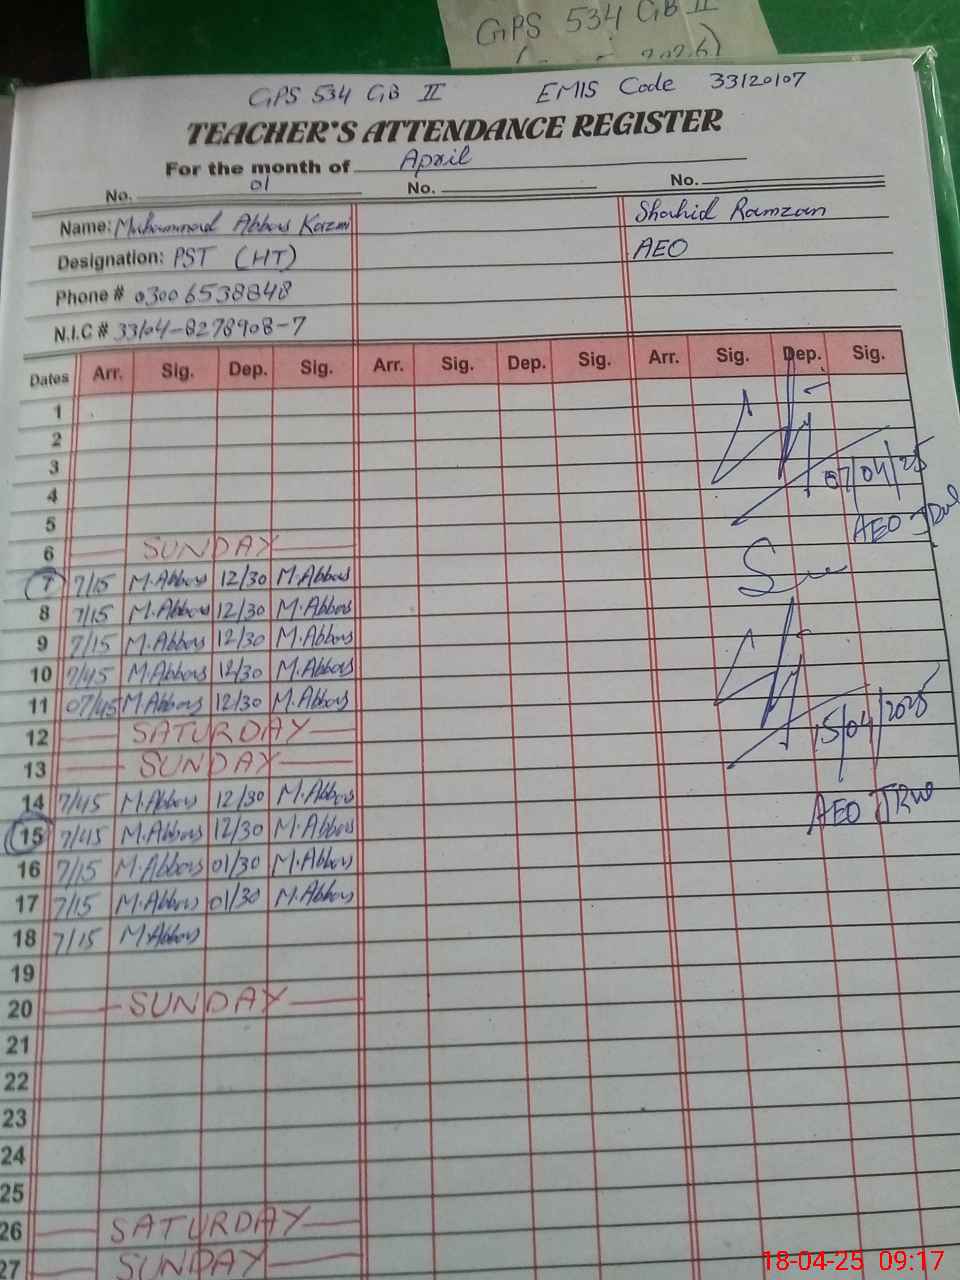 GPS 534 GB II
GPS 534 GB II EMIS Code 33120107
TEACHER'S ATTENDANCE REGISTER
For the month of April
No. 01 No. No.
Name: Muhammad Abbas Kazmi Shahid Ramzan
Designation: PST (HT) AEO
Phone # 03006538848
N.I.C # 33104-8278908-7
Dates Arr. Sig. Dep. Sig. Arr. Sig. Dep. Sig. Arr. Sig. Dep. Sig.
1
2
3
4 07/04/25
5 AEO
6 SUNDAY
7 7/15 M.Abbas 12/30 M.Abbas
8 7/15 M.Abbas 12/30 M.Abbas
9 7/15 M.Abbas 12/30 M.Abbas
10 7/45 M.Abbas 12/30 M.Abbas
11 07/45 M.Abbas 12/30 M.Abbas
12 SATURDAY 15/04/2025
13 SUNDAY
14 7/45 M.Abbas 12/30 M.Abbas
15 7/45 M.Abbas 12/30 M.Abbas AEO
16 7/15 M.Abbas 01/30 M.Abbas
17 7/15 M.Abbas 01/30 M.Abbas
18 7/15 M.Abbas
19
20 SUNDAY
21
22
23
24
25
26 SATURDAY
27 SUNDAY
18-04-25 09:17